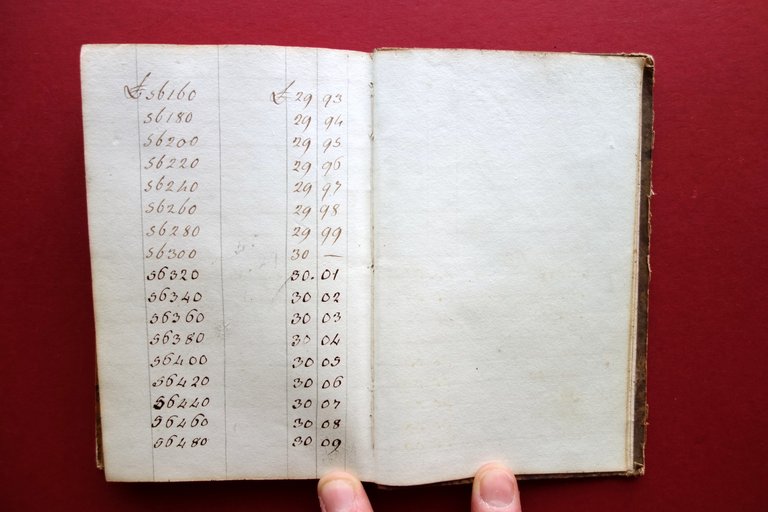 £ 56160 £ 29 93
56180 29 94
56200 29 95
56220 29 96
56240 29 97
56260 29 98
56280 29 99
56300 30 —
56320 30. 01
56340 30 02
56360 30 03
56380 30 04
56400 30 05
56420 30 06
56440 30 07
56460 30 08
56480 30 09